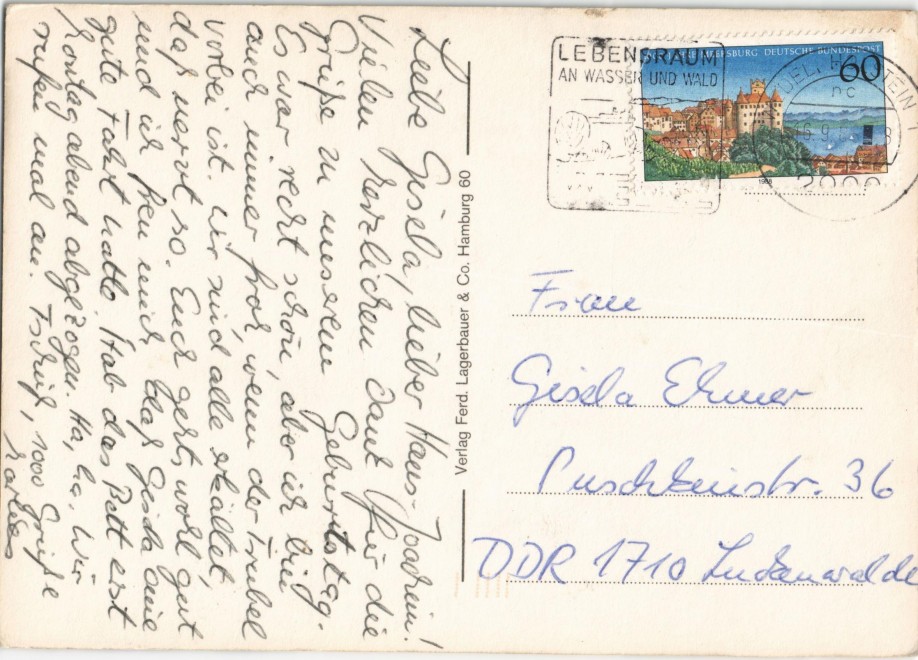 Liebe Gisela, lieber Hans-Joachim!
Vielen herzlichen Dank für die
Grüße zu unserem Geburtstag.
Es war recht schön, aber ich bin
auch immer froh, wenn der Trubel
vorbei ist. Wir sind alle erkältet,
das nervt so. Euch geht's wohl gut
und ich freu mich, daß Gerda eine
gute Fahrt hatte. Hab das Bett erst
Montag abend abgezogen. Ha, ha. Wir
rufen mal an. Tschüß, 1000 Grüße
Verlag Ferd. Lagerbauer & Co. Hamburg 60
LEBENSRAUM
AN WASSER UND WALD
DEUTSCHE BUNDESPOST
60
nc
1988
Frau
Gisela Ehmer
Puschkinstr. 36
DDR 1710 Luckenwalde